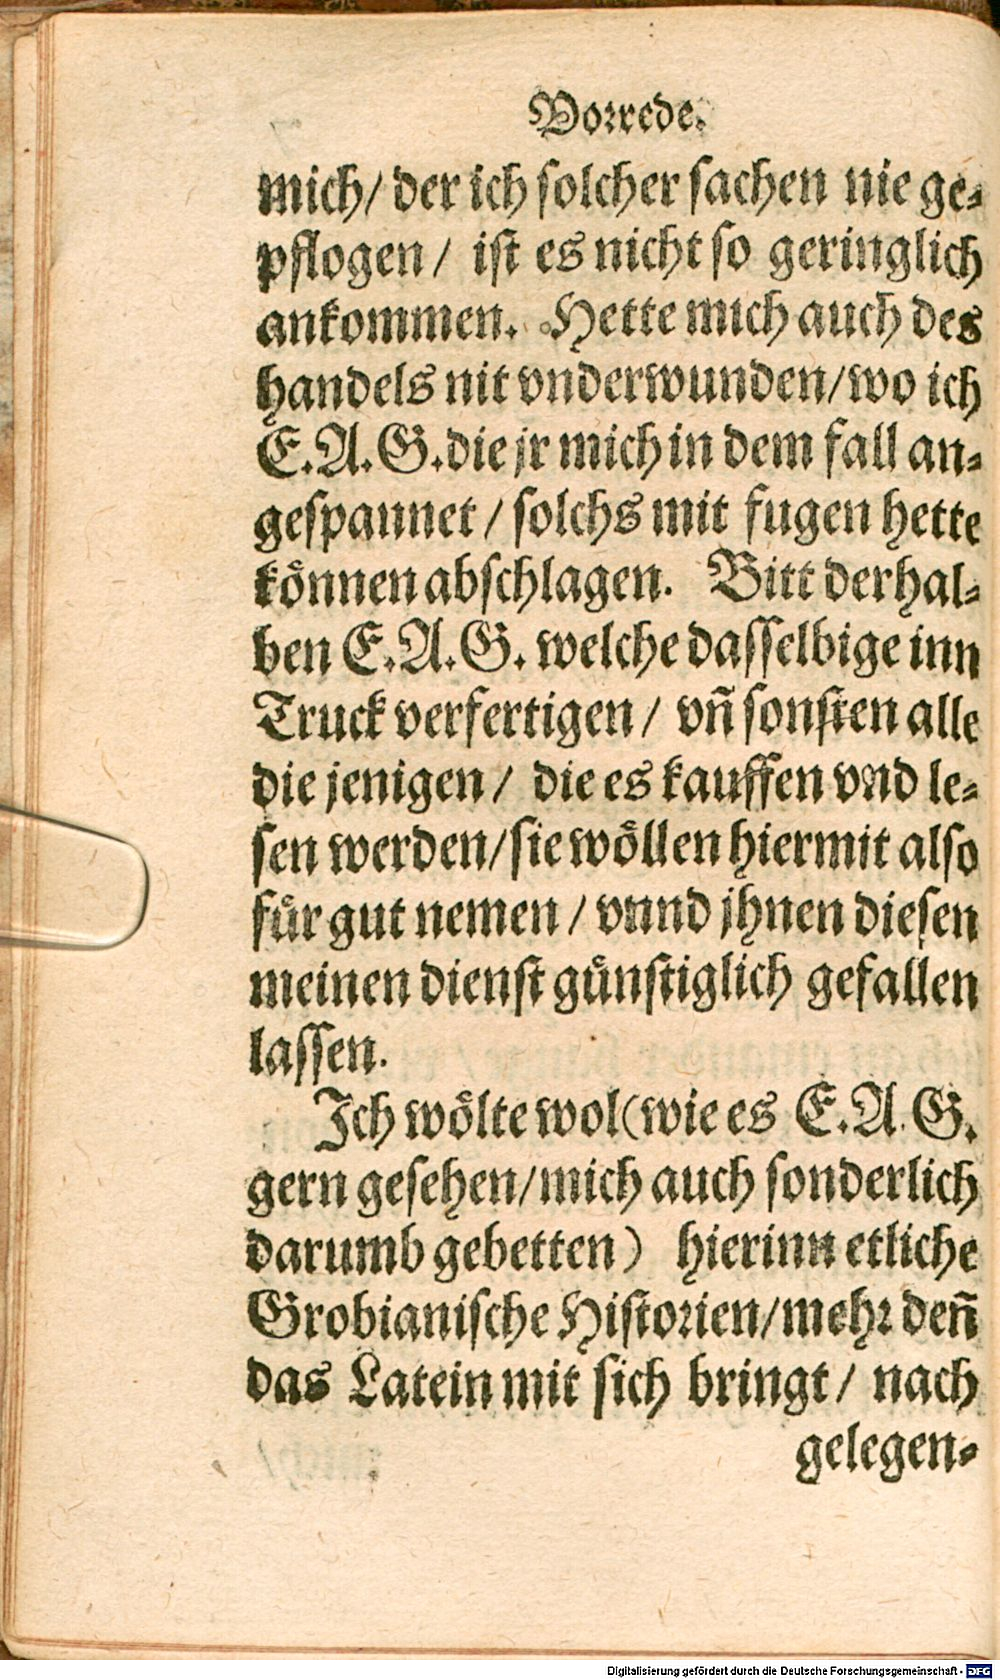 Vorrede.
mich/ der ich solcher sachen nie ge-
pflogen/ ist es nicht so geringlich
ankommen. Hette mich auch des
handels nit vnderwunden/wo ich
E.A.G.die jr mich in dem fall an-
gespannet/ solchs mit fugen hette
koͤnnen abschlagen. Bitt derhal-
ben E.A.G. welche dasselbige inn
Truck verfertigen/ vñ sonsten alle
die jenigen/ die es kauffen vnd le-
sen werden/sie woͤllen hiermit also
fuͤr gut nemen/ vnnd jhnen diesen
meinen dienst guͤnstiglich gefallen
lassen.
Ich woͤlte wol(wie es E.A.G.
gern gesehen/mich auch sonderlich
darumb gebetten) hierinn etliche
Grobianische Historien/mehr deñ
das Latein mit sich bringt/ nach
gelegen-
Digitalisierung gefördert durch die Deutsche Forschungsgemeinschaft - DFG